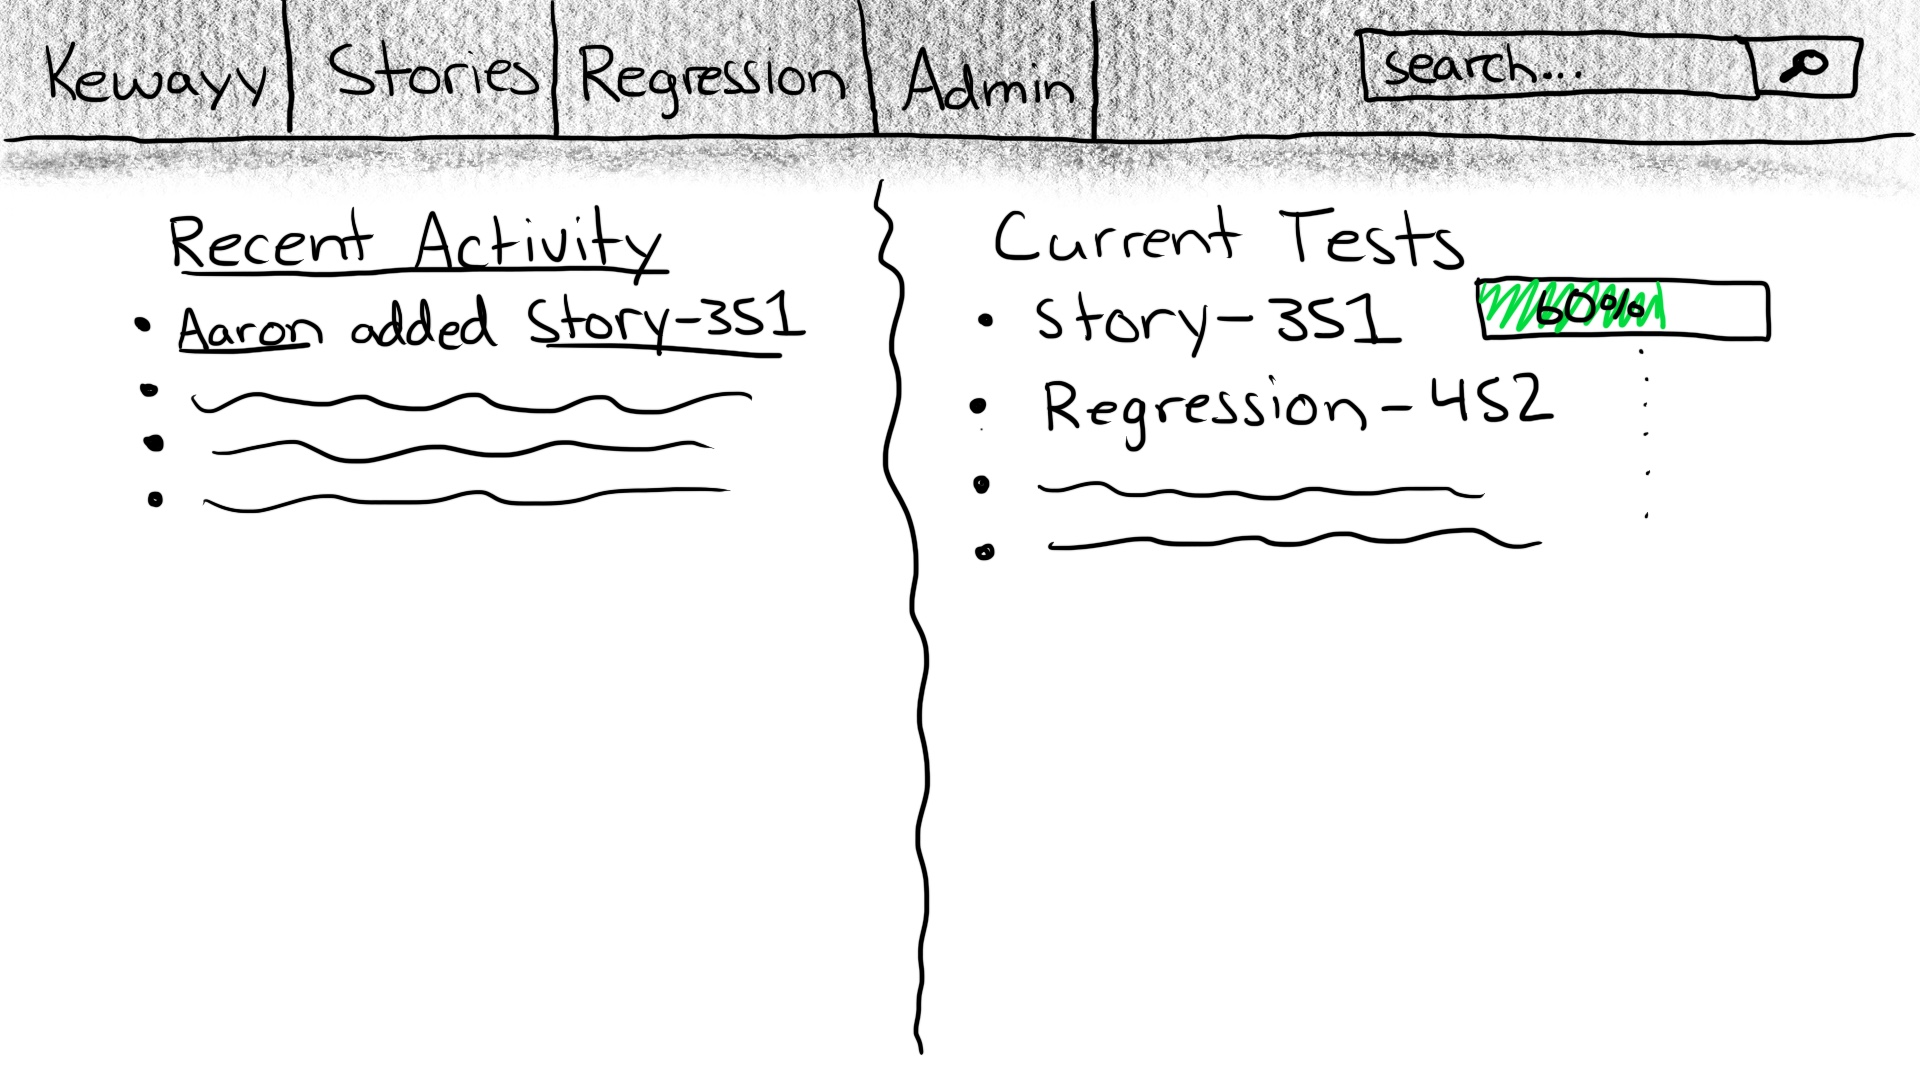 Kewayy Stories Regression Admin search...
Recent Activity
• Aaron added Story-351
Current Tests
• Story-351 60%
• Regression-452